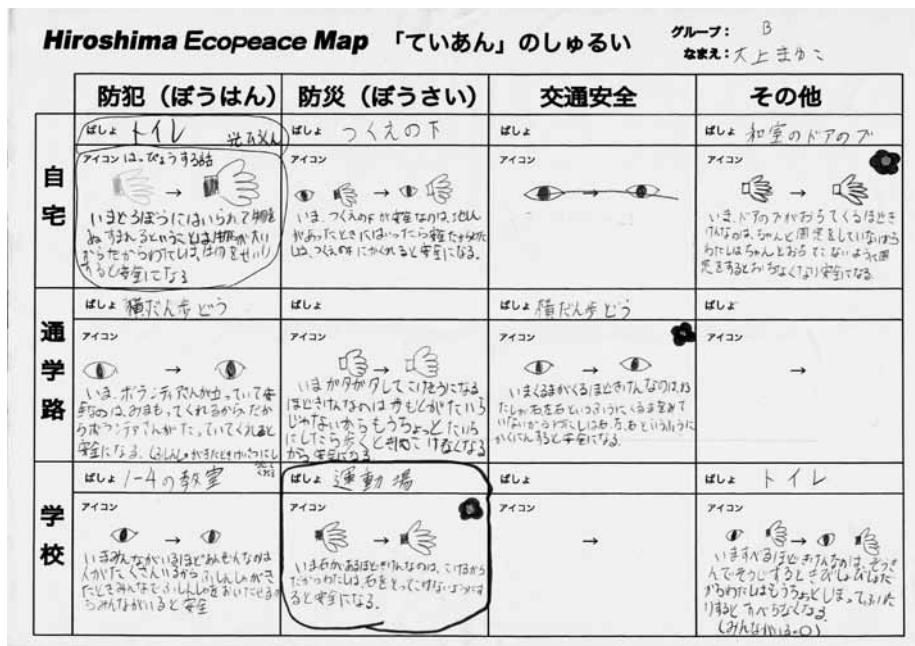 Hiroshima Ecopeace Map 「ていあん」のしゅるい
グループ： B
なまえ：大上まゆこ
防犯（ぼうはん）
防災（ぼうさい）
交通安全
その他
自宅
ばしょ トイレ
アイコン はっぴょうする話
→
いまどろぼうにはいられて
ばしょ つくえの下
アイコン
→
いま、つくえの下が安全なのは、地しん
があったときにはいったら安全だから
つくえの下にかくれると安全になる。
ばしょ
アイコン
→
ばしょ 和室のドアのフ
アイコン
→
いま、ドアのフがおちてくるほどき
けんなのは、ちゃんと固定をしていないから
わたしはちゃんとおちてこないように固
定をするとおちなくなり安全になる。
通学路
ばしょ 横だん歩どう
アイコン
→
いま、ボランティアさんが立っていて安
全なのは、みまもってくれるから、だか
らボランティアさんがたっていてくれると
安全になる。
ばしょ
アイコン
→
いまガタガタしてこけそうになる
ほどきけんなのは歩もとがたいら
じゃないからもうちょっとたいら
にしたら歩くとき こけなくなる
から安全になる
ばしょ 横だん歩どう
アイコン
→
いまくるまがくるほどきけんなのは、わ
たしが右左右というふうにくるまをみて
いないからわたしは右、左、右というふうに
かくにんすると安全になる。
ばしょ
アイコン
→
学校
ばしょ 1-4の教室
アイコン
→
いまみんながいるほどあんぜんなのは
人がたくさんいるからふしんしゃがき
たときみんなでふしんしゃをおいだせるか
らみんながいると安全
ばしょ 運動場
アイコン
→
いま石があるほどきけんなのは、こけるから
だからわたしは、石をとってこけないようにす
ると安全になる。
ばしょ
アイコン
→
ばしょ トイレ
アイコン
→
いますべるほどきけんなのは、ぞうき
んでそうじするときびしょびしょだ
からわたしはもうちょっとしぼってふいた
りするとすべらなくなる